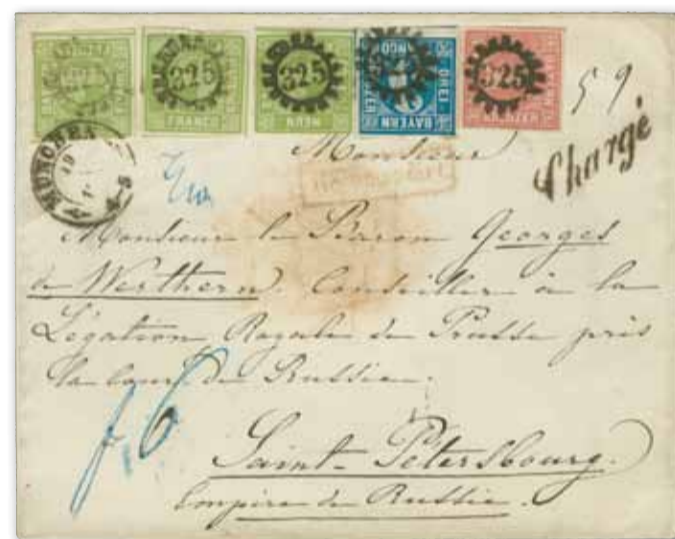 325 325 325 325
FRANCO NEUN DREI BAYERN KREUZER
MÜNCHEN
59
Chargé
Monsieur
Monsieur le Baron Georges
de Werthern. Conseiller à la
Légation Royale de Prusse près
la cour de Russie.
f. 6
Saint-Pétersbourg.
Empire de Russie.